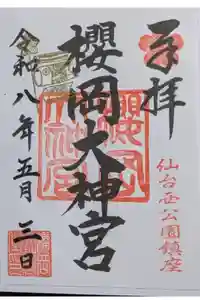 奉拝
仙台西公園鎮座
櫻岡大神宮
令和八年五月三日